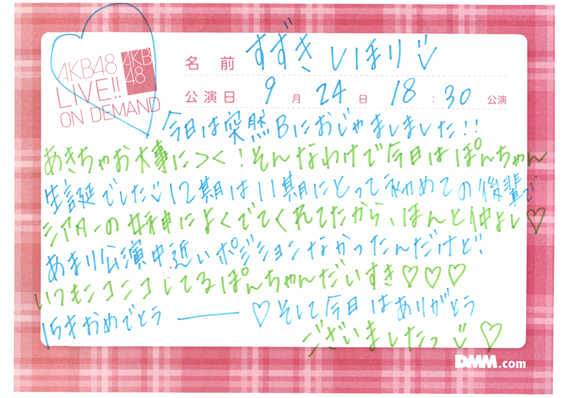 AKB48
LIVE!!
ON DEMAND
AKB
48
名前 すずき しほり
公演日 9月24日 18:30公演
今日は突然Bにおじゃましました!!
あきちゃお大事にっ<！そんなわけで今日はぽんちゃん
生誕でした♡12期は11期にとって初めての後輩で
シアターの女神によくでてくれてたから、ほんと仲よし♡
あまり公演中近いポジションなかったんだけど!
いつもニコニコしてるぽんちゃんだいすき♡♡♡
15才おめでとうーー♡そして今日はありがとう
ございましたっ♡
DMM.com